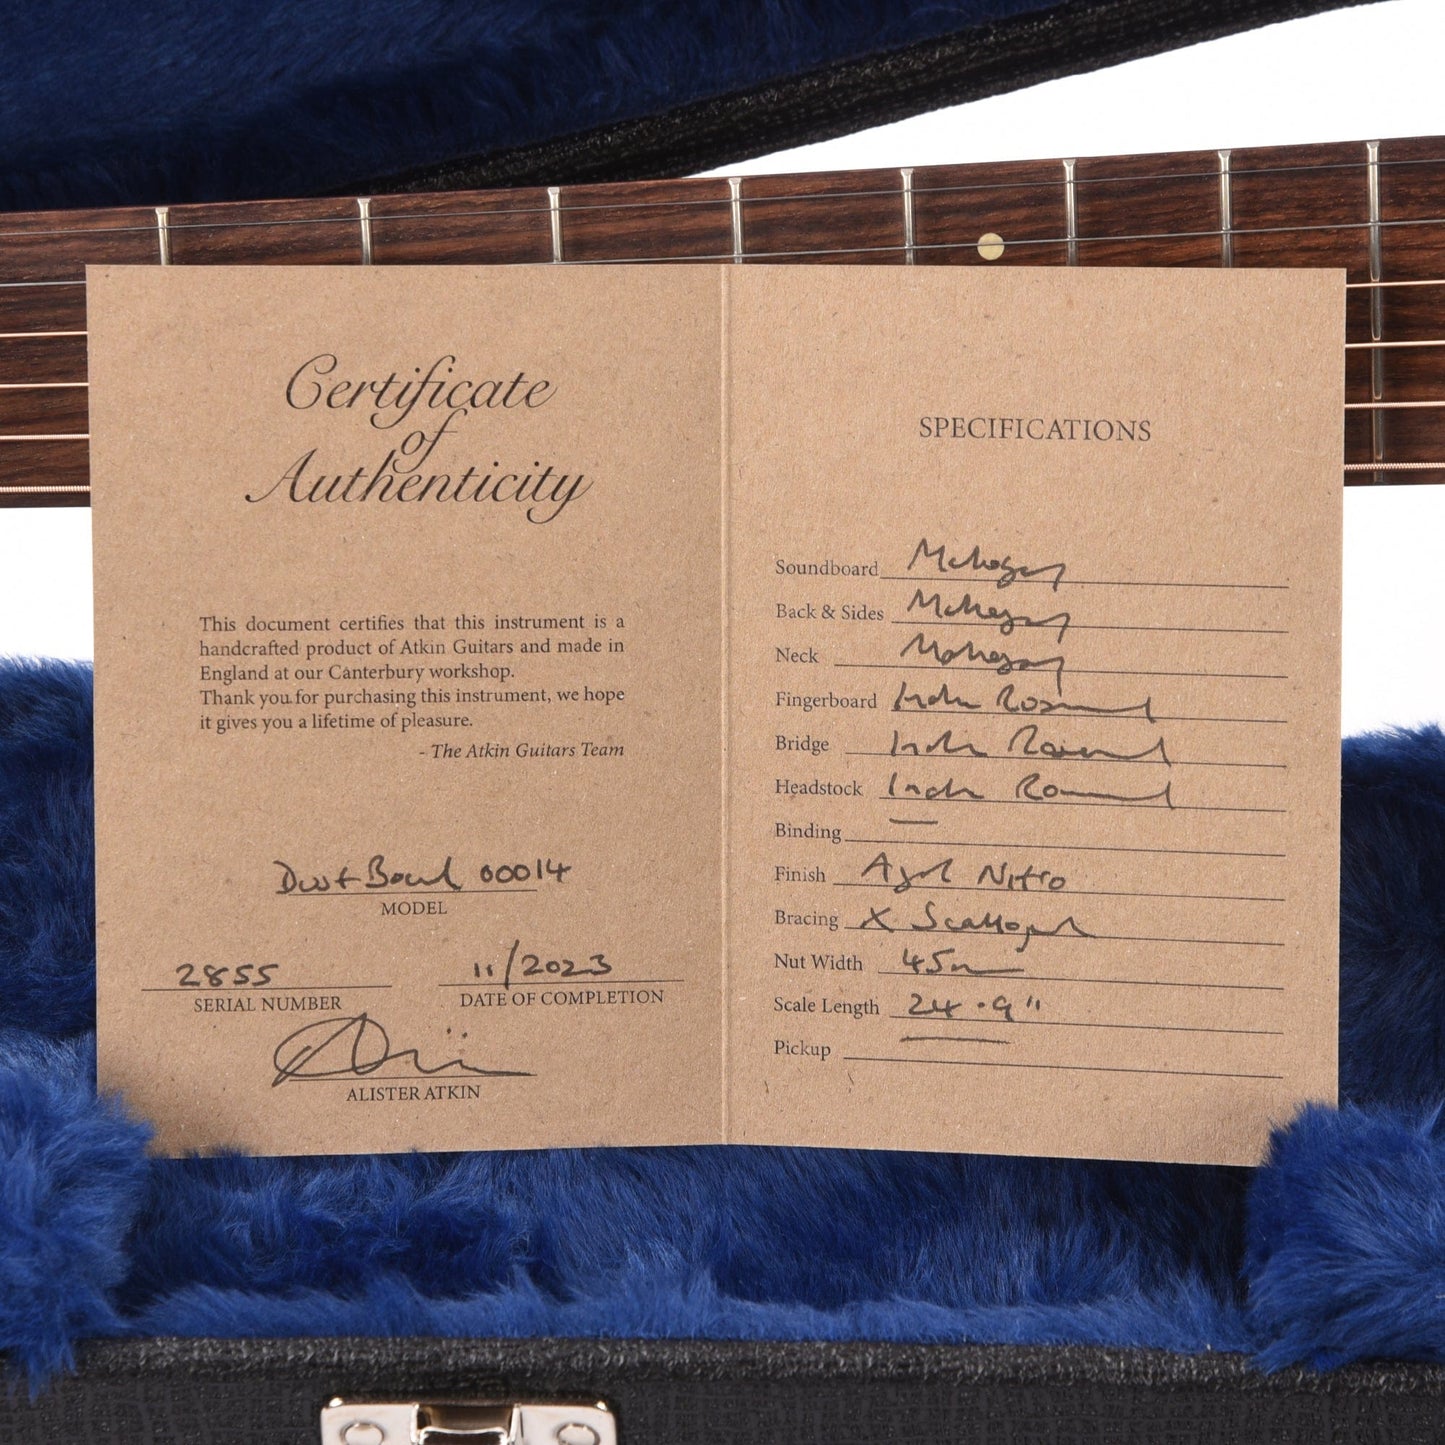 Certificate
of
Authenticity
This document certifies that this instrument is a
handcrafted product of Atkin Guitars and made in
England at our Canterbury workshop.
Thank you for purchasing this instrument, we hope
it gives you a lifetime of pleasure.
- The Atkin Guitars Team
Dust Bowl 00014
MODEL
2855
SERIAL NUMBER
11/2023
DATE OF COMPLETION
ALISTER ATKIN
SPECIFICATIONS
Soundboard Mahogany
Back & Sides Mahogany
Neck Mahogany
Fingerboard Indian Rosewood
Bridge Indian Rosewood
Headstock Indian Rosewood
Binding —
Finish Aged Nitro
Bracing X Scalloped
Nut Width 45mm
Scale Length 24.9"
Pickup —